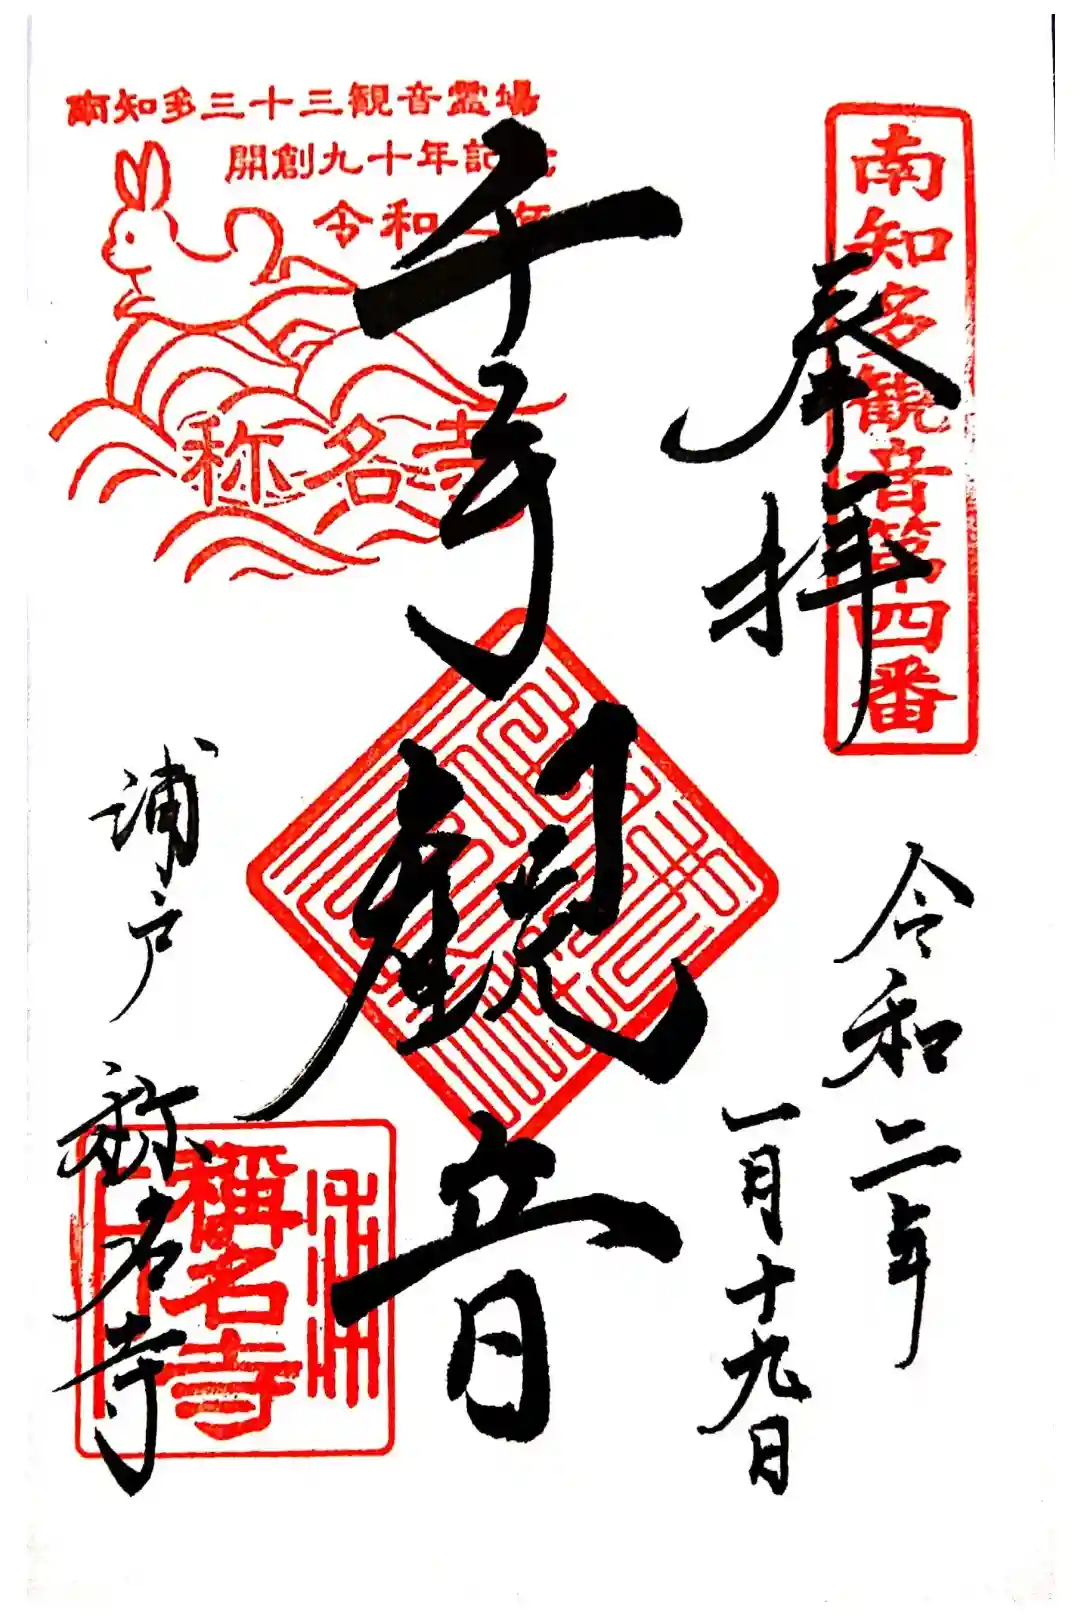 南知多観音第四番
奉拝
令和二年
一月十九日
千手観音
南知多三十三観音霊場
開創九十年記
令和二年
称名寺
浦戸 称名寺
稱名寺